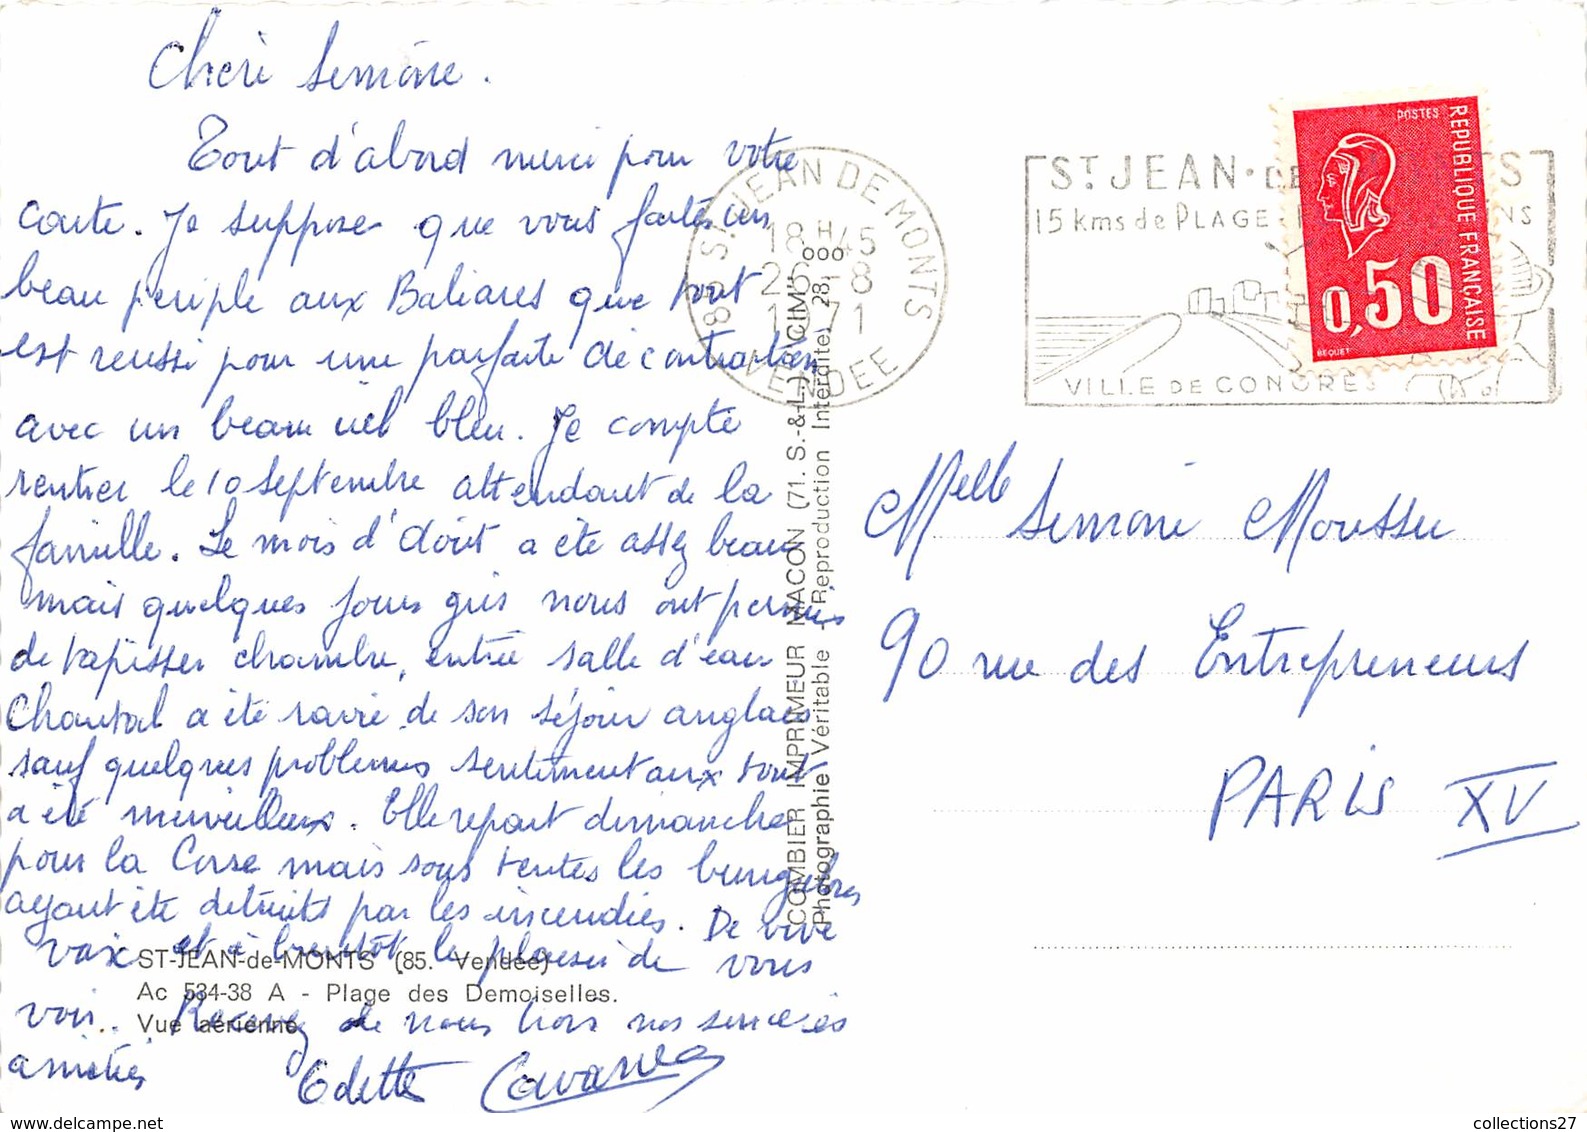 Chère Simone.
Tout d'abord merci pour votre
carte. Je suppose que vous faites un
beau periple aux Baliares que tout
est reussi pour une parfaite décontraction
avec un beau ciel bleu. Je compte
rentrer le 10 septembre attendant de la
famille. Le mois d'Août a été assez beau
mais quelques jours gris nous ont permis
de tapisser chambre, entrée salle d'eau
Chantal a été ravie de son séjour anglais
sauf quelques problemes sentimentaux tout
a été merveilleux. Elle repart dimanche
pour la Corse mais sous tentes les bungalows
ayant été detruits par les incendies. De vive
voix et à bientôt le plaisir de vous
voir. Recevez de nous trois nos sincères
amitiés
Odette
ST-JEAN-de-MONTS (85. Vendée)
Ac 534-38 A - Plage des Demoiselles.
Vue aérienne.
COMBIER IMPRIMEUR MACON (71. S.-&-L.) "CIM"
Photographie Véritable - Reproduction Interdite. 28.1
ooo
85 ST JEAN DE MONTS
18 H 45
26 - 8
1971
VENDEE
ST JEAN · DE MONTS
15 kms de PLAGE
VILLE DE CONGRES
POSTES
REPUBLIQUE FRANÇAISE
0,50
BEQUET
Melle Simone Moussu
90 rue des Entrepreneurs
PARIS XV
www.delcampe.net
collections27